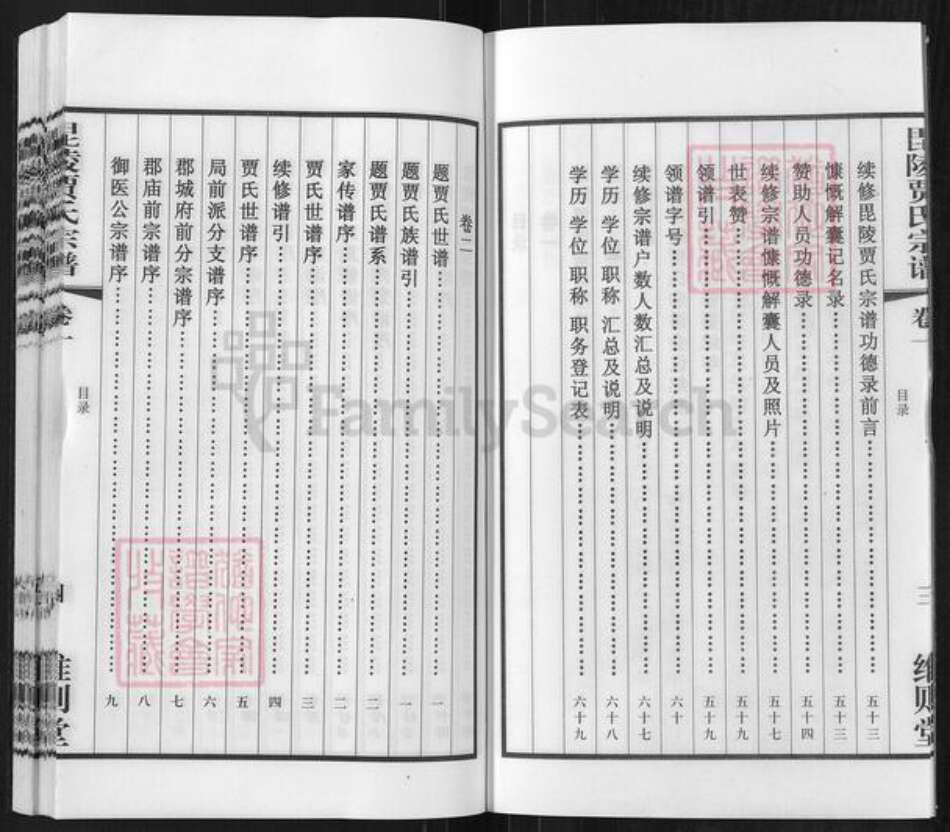 毗陵贾氏宗谱 卷一
目录
三
维则堂
续修毘陵贾氏宗谱功德录前言 五十三
慷慨解囊记名录 五十三
赞助人员功德录 五十四
续修宗谱慷慨解囊人员及照片 五十七
世表赞 五十九
领谱引 五十九
领谱字号 六十
续修宗谱户数人数汇总及说明 六十七
学历 学位 职称 汇总及说明 六十八
学历 学位 职称 职务登记表 六十九
卷二
题贾氏世谱 一
题贾氏族谱引 一
题贾氏谱系 二
家传谱序 二
贾氏世谱序 三
续修谱引 四
贾氏世谱序 五
局前派分支谱序 六
郡城府前分宗谱序 七
郡庙前宗谱序 八
御医公宗谱序 九
毗陵贾氏宗谱 卷一
目录
四
维则堂
FamilySearch